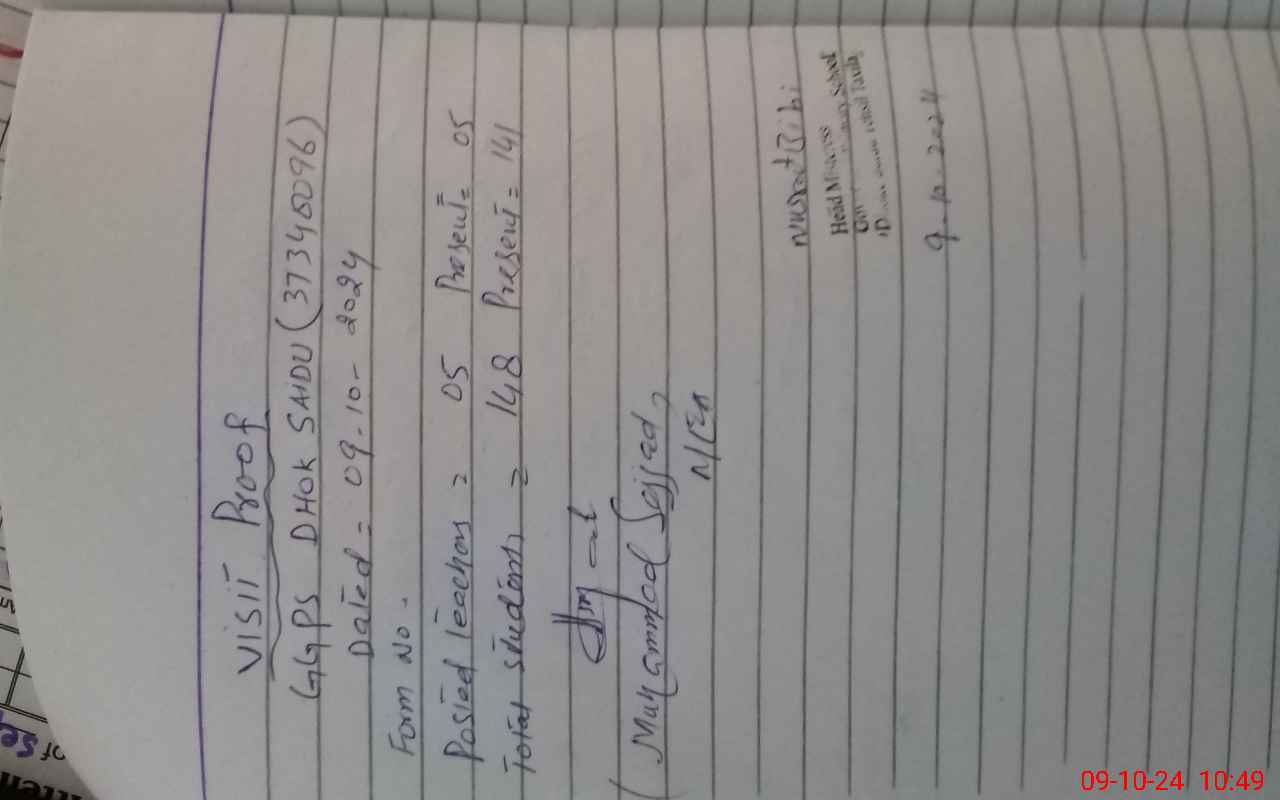 VISIT Proof
GGPS DHOK SAIDU (37340096)
Dated = 09-10-2024
Form No.
Posted teachers = 05 Present = 05
Total students = 148 Present = 141
(Muhammad Sajjad)
MEA
Nusrat Bibi
Head Mistress
School
9.10.2024
09-10-24 10:49
of Se